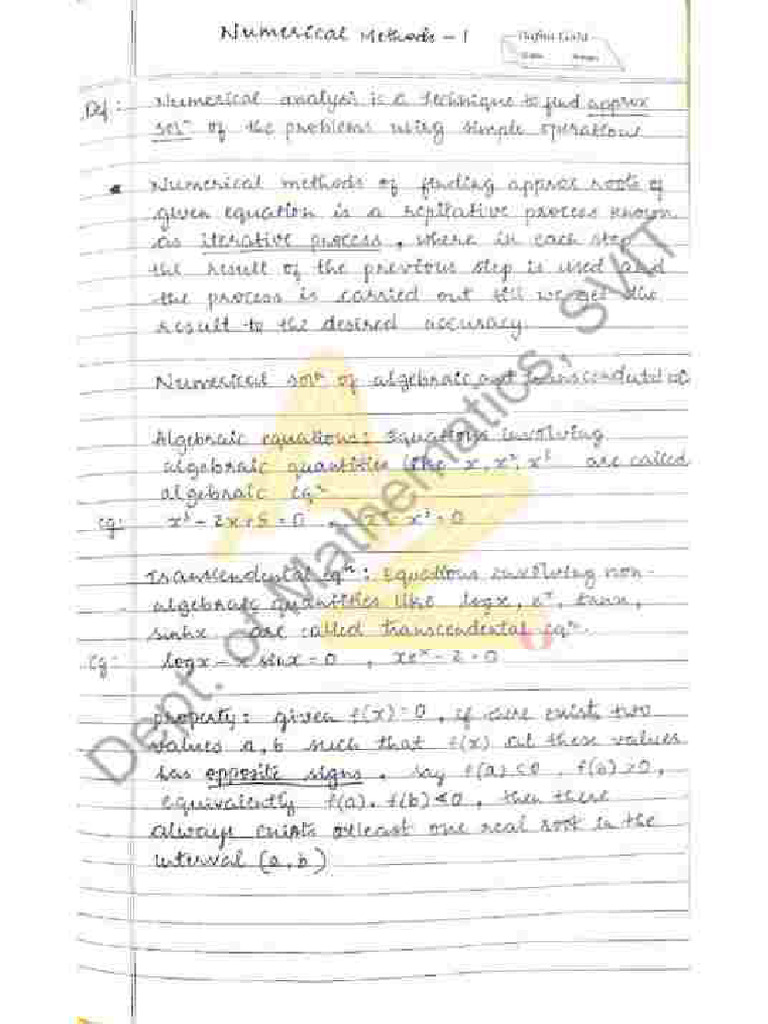 Numerical Methods - 1
Def: Numerical analysis is a technique to find approx
solⁿ of the problems using simple operations
Numerical methods of finding approx roots of
given equation is a repitative process known
as iterative process, where in each step
the result of the previous step is used and
the process is carried out till we get the
result to the desired accuracy.
Numerical solⁿ of algebraic and
Algebraic equations: Equations involving
algebraic quantities like x, x², x³ are called
algebraic eqⁿ
eg: x³ - 2x + 5 = 0 ,
Transcendental eqⁿ: Equations involving non-
algebraic quantities like logx, eˣ, tanx,
sinhx are called transcendental eqⁿ.
eg: logx - x sinx = 0 , xeˣ - 2 = 0
property: given f(x) = 0, if there exists two
values a, b such that f(x) at these values
has opposite signs, say f(a) < 0, f(b) > 0,
equivalently f(a). f(b) < 0, then there
always exists atleast one real root in the
interval (a, b)
Dept. of Mathematics, SVIT